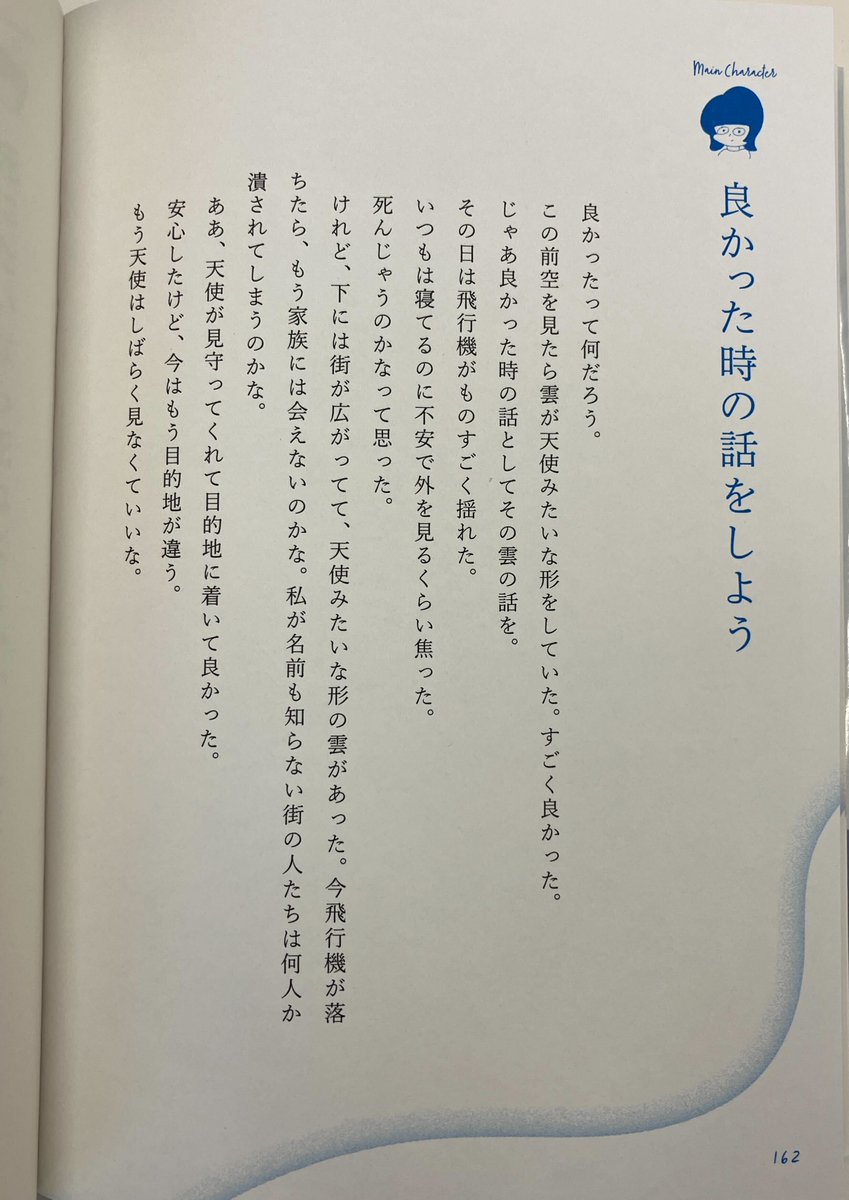 Main Character
良かった時の話をしよう
良かったって何だろう。
この前空を見たら雲が天使みたいな形をしていた。すごく良かった。
じゃあ良かった時の話としてその雲の話を。
その日は飛行機がものすごく揺れた。
いつもは寝てるのに不安で外を見るくらい焦った。
死んじゃうのかなって思った。
けれど、下には街が広がってて、天使みたいな形の雲があった。今飛行機が落
ちたら、もう家族には会えないのかな。私が名前も知らない街の人たちは何人か
潰されてしまうのかな。
ああ、天使が見守ってくれて目的地に着いて良かった。
安心したけど、今はもう目的地が違う。
もう天使はしばらく見なくていいな。
162